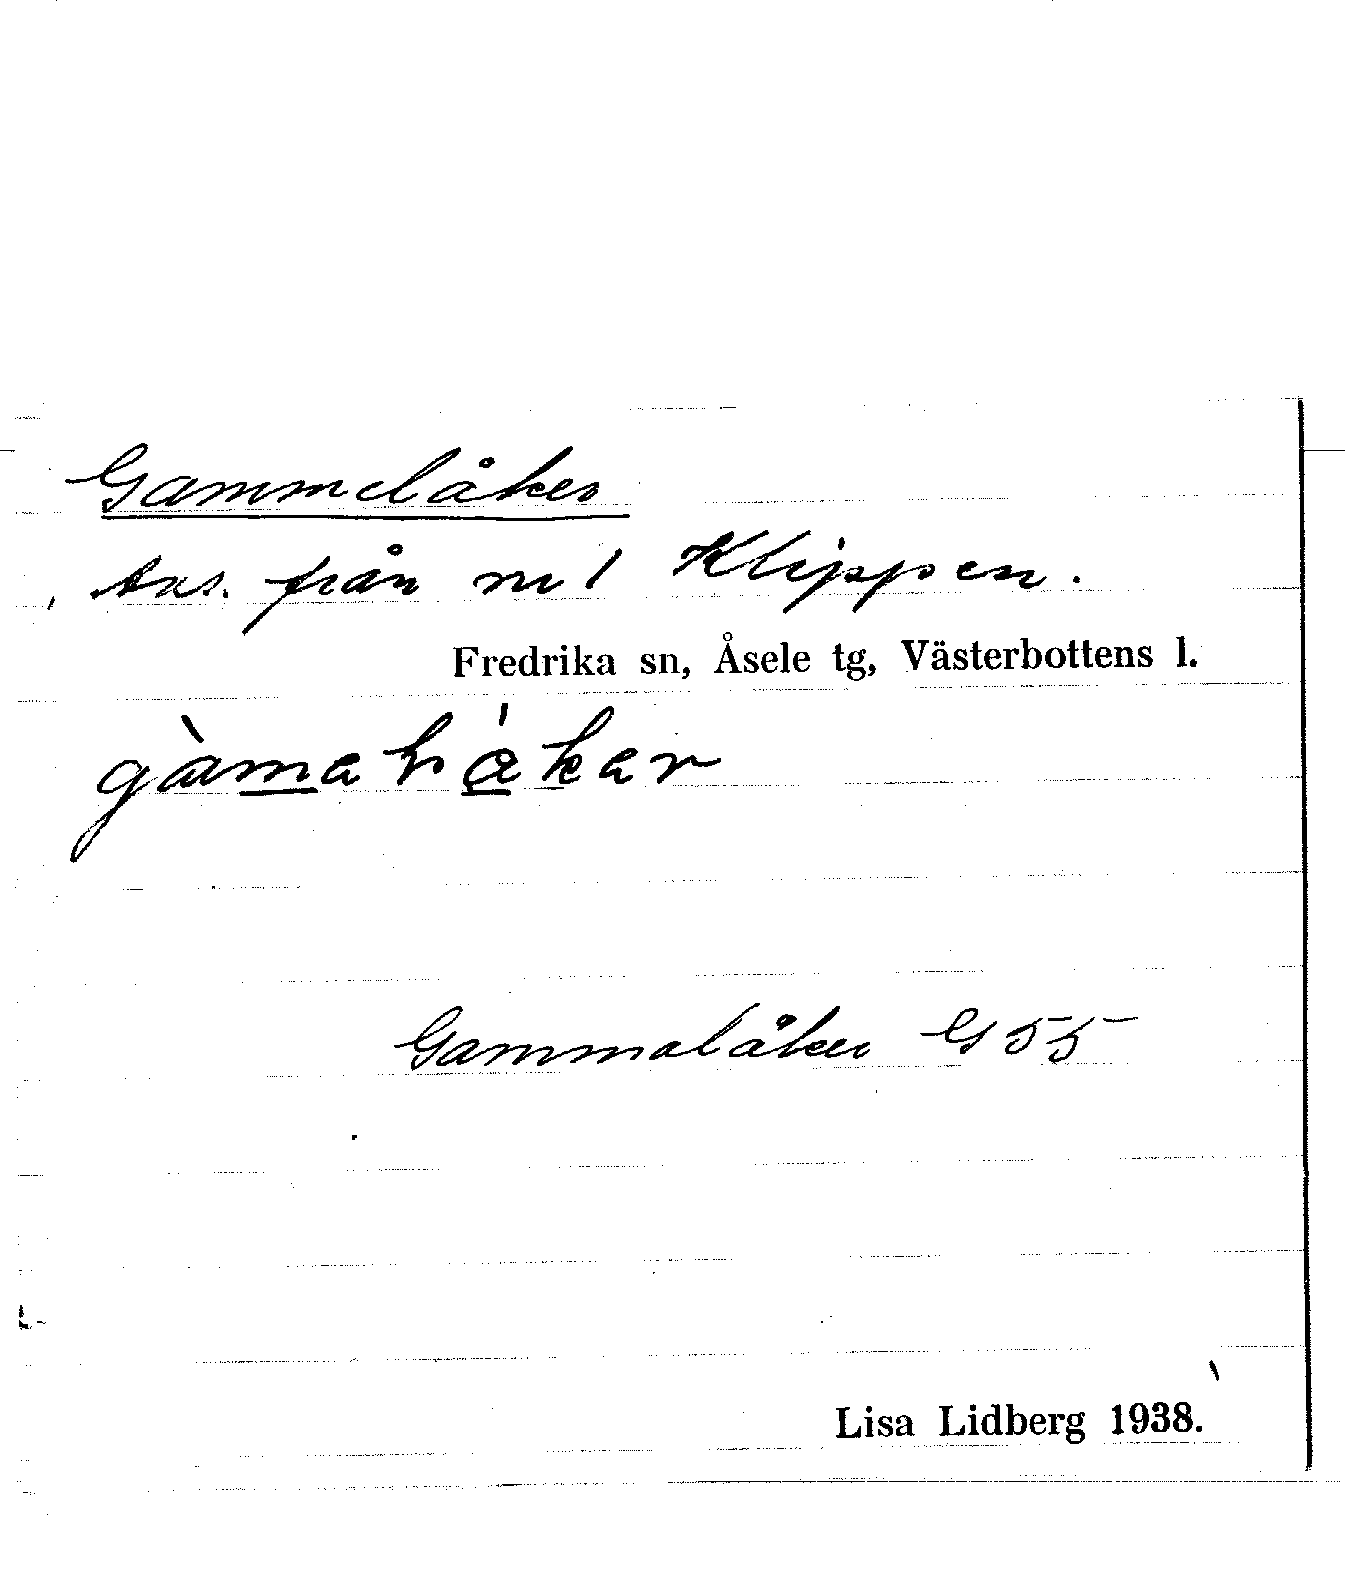 Gammelåker
Avs. från nr 1 Klippen.
Fredrika sn, Åsele tg, Västerbottens l.
Gammelåker G 55
Lisa Lidberg 1938.